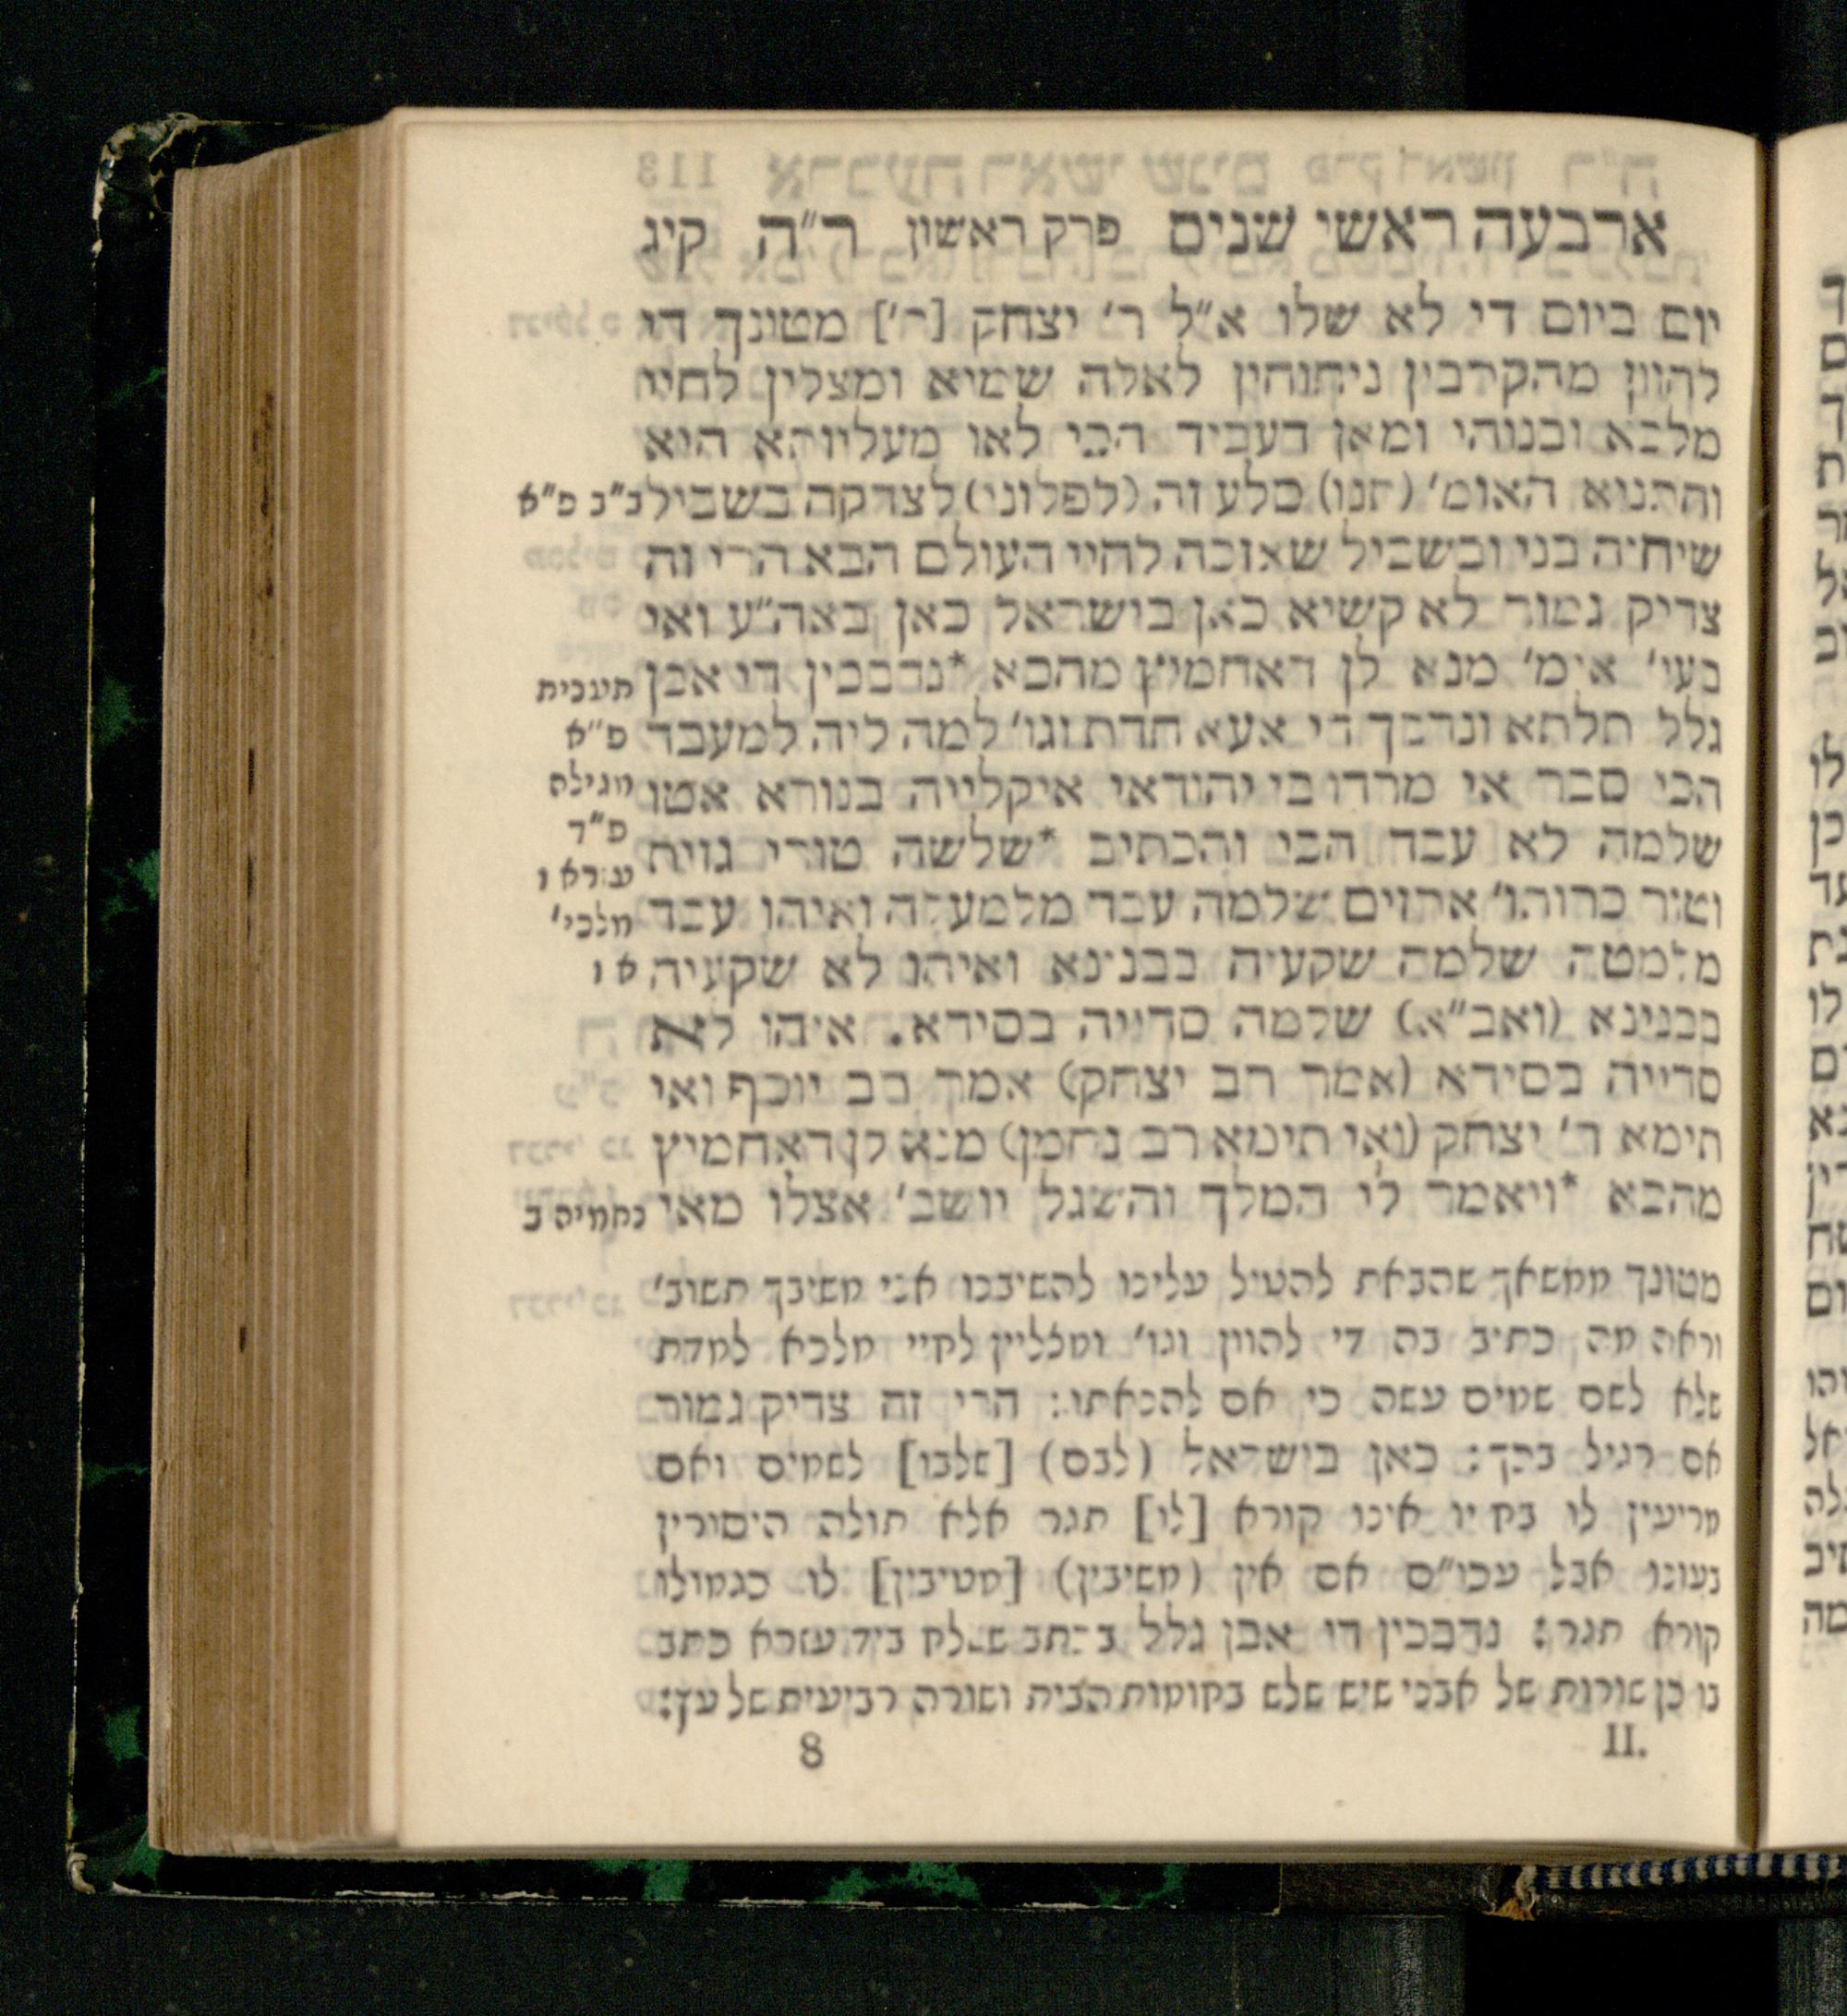 ארבעה ראשי שנים פרק ראשון ר״ה קיג
יום ביום די לא שלו א״ל ר׳ יצחק [ר׳] מטונך די
להוון מהקרבין ניחוחין לאלה שמיא ומצלין לחיי
מלכא ובנוהי ומאן דעביד הכי לאו מעליותא היא
והתניא האומ׳ (תנו) סלע זה (לפלוני) לצדקה בשביל ב״ב פ״א
שיחיה בני ובשביל שאזכה לחיי העולם הבא הרי זה
צדיק גמור לא קשיא כאן בישראל כאן באה״ע ואי
בעי׳ אימ׳ מנא לן דאחמיץ מהכא *נדבכין די אבן תענית
גלל תלתא ונדבך די אעא חדת וגו׳ למה ליה למעבד פ״א
הכי סבר אי מרדו בי יהודאי איקלייה בנורא אטו מגילה
שלמה לא עבד הכי והכתיב *שלשה טורי גזית פ״ד
עזרא ו
וטור כרותו׳ ארזים שלמה עבד מלמעלה ואיהו עבד מלכי׳
מלמטה שלמה שקעיה בבנינא ואיהו לא שקעיה א ו
בבנינא (ואב״א) שלמה סדייה בסידא. איהו לא
סדייה בסידא (אמר רב יצחק) אמר רב יוסף ואי
תימא ר׳ יצחק (ואי תימא רב נחמן) מנא לן דאחמיץ
מהכא *ויאמר לי המלך והשגל יושב׳ אצלו מאי נחמיה ב
מטונך ממשאך שהבאת להטיל עלינו להשיבנו אני משיבך תשוב׳
וראה מה כתיב בה די להוון וגו׳ ומצליין לחיי מלכא למדת
שלא לשם שמים עשה כי אם להנאתו: הרי זה צדיק גמור
אם רגיל בכך: כאן בישראל (לבם) [שלבו] לשמים ואם
מריעין לו בחייו אינו קורא [לו] תגר אלא תולה היסורין
בעונו אבל עכו״ם אם אין (משיבין) [מטיבין] לו כגמולו
קורא תגר: נדבכין די אבן גלל בכתב ששלח ביד עזרא כתב
בו כן שורות של אבני שיש שלש בחומות הבית ושורה רביעית של עץ:
II. 8